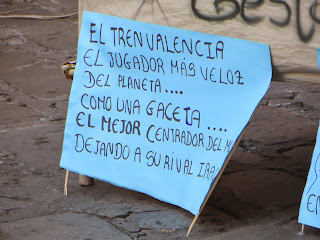 EL TREN VALENCIA
EL JUGADOR MÁS VELOZ
DEL PLANETA ....
COMO UNA GACETA ....
EL MEJOR CENTRADOR DEL
DEJANDO A SU RIVAL